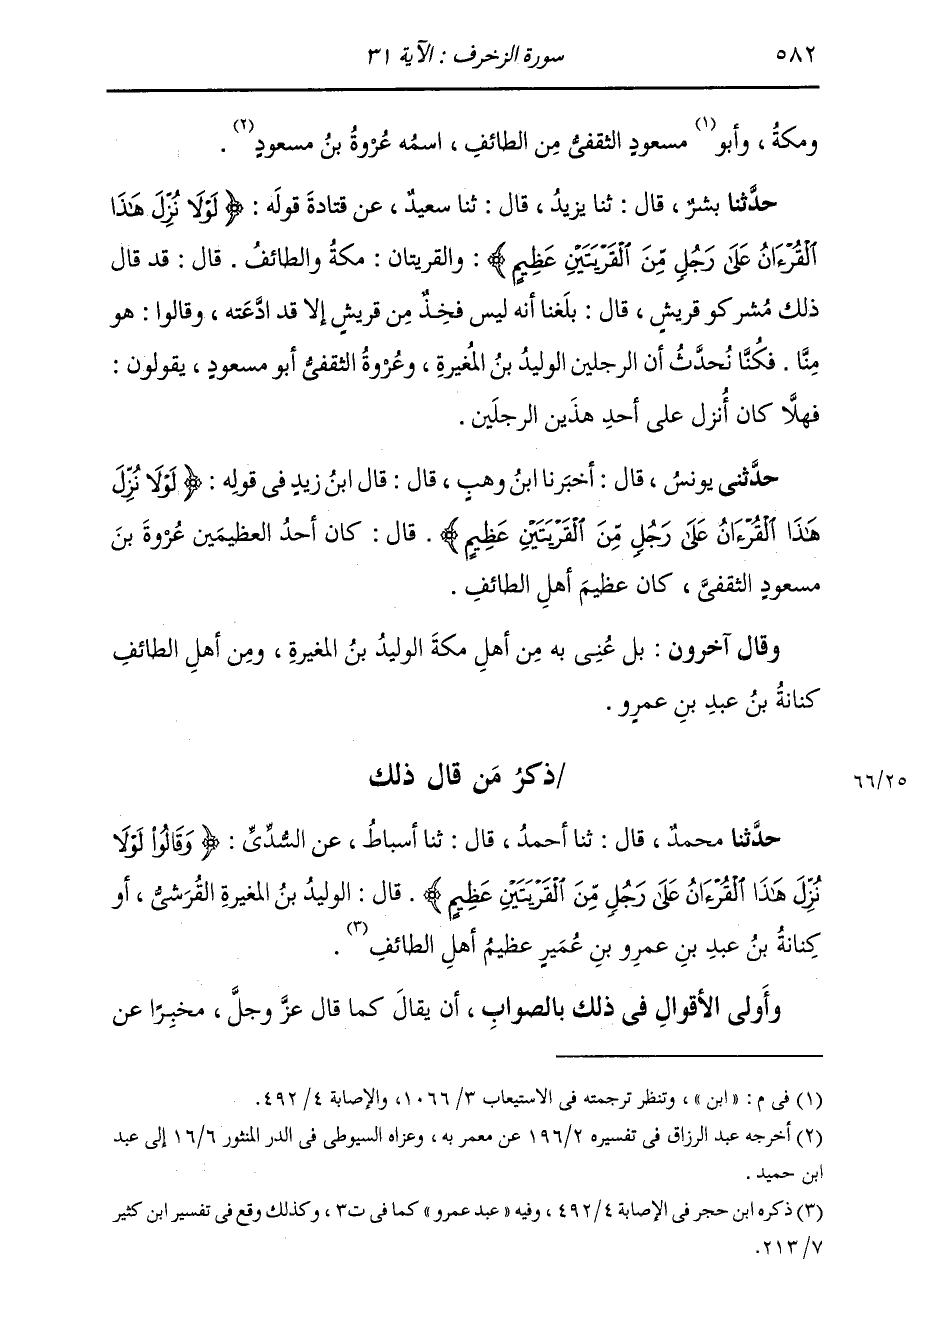 ٥٨٢ سورة الزخرف : الآية ٣١
ومكةُ ، وأبو(١) مسعودٍ الثقفىُّ مِن الطائفِ ، اسمُه عُرْوةُ بنُ مسعودٍ(٢) .
حدَّثنا بشرٌ ، قال : ثنا يزيدُ ، قال : ثنا سعيدٌ ، عن قتادةَ قولَه : ﴿ لَوْلَا نُزِّلَ هَٰذَا
ٱلْقُرْءَانُ عَلَىٰ رَجُلٍ مِّنَ ٱلْقَرْيَتَيْنِ عَظِيمٍ ﴾ : والقريتان : مكةُ والطائفُ . قال : قد قال
ذلك مُشركو قريشٍ ، قال : بلَغنا أنه ليس فخِذٌ مِن قريشٍ إلا قد ادَّعَته ، وقالوا : هو
مِنَّا . فكُنَّا نُحدَّثُ أن الرجلين الوليدُ بنُ المُغيرةِ ، وعُرْوةُ الثقفىُّ أبو مسعودٍ ، يقولون :
فهلَّا كان أُنزل على أحدِ هذَين الرجلَين .
حدَّثنى يونسُ ، قال : أخبَرنا ابنُ وهبٍ ، قال : قال ابنُ زيدٍ فى قولِه : ﴿ لَوْلَا نُزِّلَ
هَٰذَا ٱلْقُرْءَانُ عَلَىٰ رَجُلٍ مِّنَ ٱلْقَرْيَتَيْنِ عَظِيمٍ ﴾ . قال : كان أحدُ العظيمَين عُرْوةَ بنَ
مسعودٍ الثقفىَّ ، كان عظيمَ أهلِ الطائفِ .
وقال آخرون : بل عُنِى به مِن أهلِ مكةَ الوليدُ بنُ المغيرةِ ، ومِن أهلِ الطائفِ
كنانةُ بنُ عبدِ بنِ عمرٍو .
/ذكرُ مَن قال ذلك ٦٦/٢٥
حدَّثنا محمدٌ ، قال : ثنا أحمدُ ، قال : ثنا أسباطُ ، عن السُّدِّىِّ : ﴿ وَقَالُوا۟ لَوْلَا
نُزِّلَ هَٰذَا ٱلْقُرْءَانُ عَلَىٰ رَجُلٍ مِّنَ ٱلْقَرْيَتَيْنِ عَظِيمٍ ﴾ . قال : الوليدُ بنُ المغيرةِ القُرَشىُّ ، أو
كِنانةُ بنُ عبدِ بنِ عمرِو بنِ عُمَيرٍ عظيمُ أهلِ الطائفِ(٣) .
وأَولى الأقوالِ فى ذلك بالصوابِ ، أن يقالَ كما قال عزَّ وجلَّ ، مخبِرًا عن
(١) فى م : « ابن » ، وتنظر ترجمته فى الاستيعاب ٣/ ١٠٦٦، والإصابة ٤/ ٤٩٢.
(٢) أخرجه عبد الرزاق فى تفسيره ١٩٦/٢ عن معمر به ، وعزاه السيوطى فى الدر المنثور ١٦/٦ إلى عبد
ابن حميد .
(٣) ذكره ابن حجر فى الإصابة ٤٩٢/٤ ، وفيه « عبد عمرو » كما فى ت٣ ، وكذلك وقع فى تفسير ابن كثير
٧/ ٢١٣.